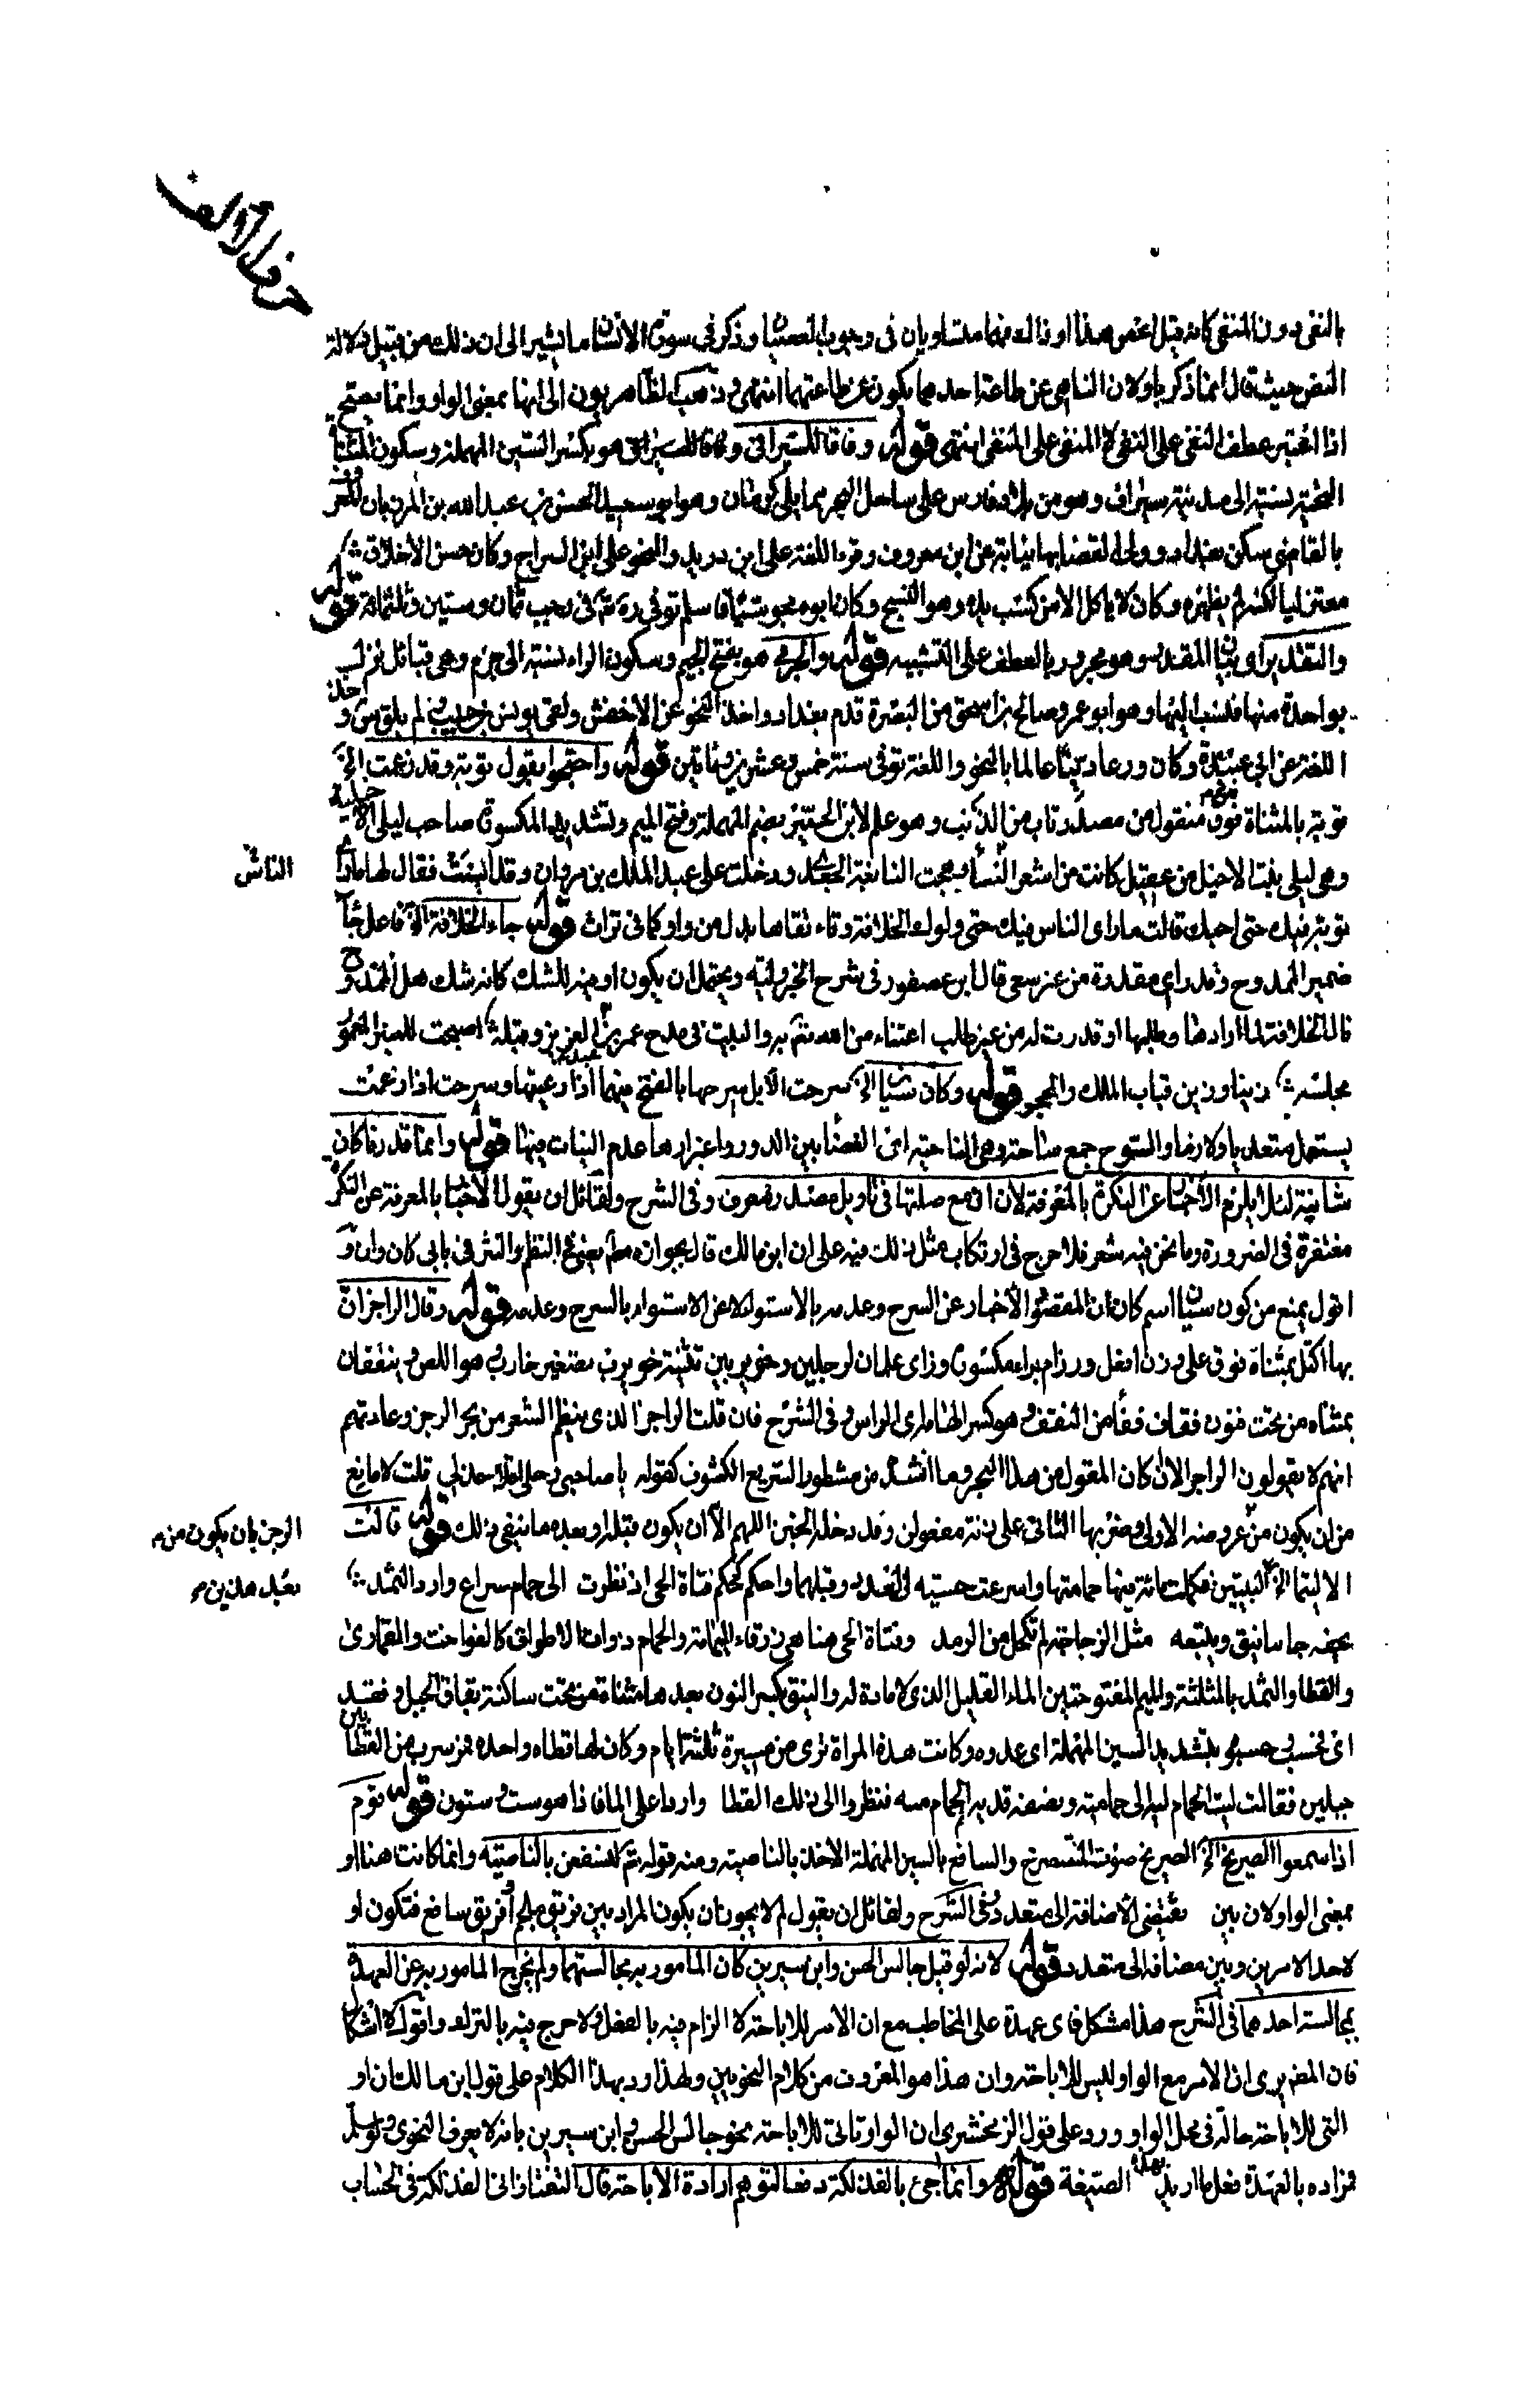 حرف الألف
بالنفي دون المنفي كانه قيل اعص هذا او ذاك فهما متساويان في وجوب العصيان وذكر في سورة الانسان ما يشير الى ان ذلك من قبيل دلالة
النص حيث قال انما ذكر باو لان الناهي عن طاعة احدهما يكون عن طاعتهما انتهى وذهب الظاهريون الى انها بمعنى الواو وانما يصح
اذا اعتبر عطف النفي على النفي لا المنفي على المنفي انتهى قوله وفاقا للسيرافي هو بكسر السين المهملة وسكون المثناة
التحتية نسبة الى مدينة سيراف وهو من بلاد فارس على ساحل البحر مما يلي كرمان وهو ابو سعيد الحسن بن عبد الله بن المرزبان المعروف
بالقاضي سكن بغداد وولي القضا بها نيابة عن ابن معروف وقرا اللغة على ابن دريد والنحو على ابن السراج وكان حسن الاخلاق
معتزليا لكنه لم يظهره وكان لا ياكل الا من كسب يده وهو النسخ وكان ابوه مجوسيا فاسلم توفي في رجب ثمان وستين وثلثمائة قوله
والتقدير اي بيان المقدر وهو مجرور بالعطف على التشبيه قوله والجرمي هو بفتح الجيم وسكون الراء نسبة الى جرم وهي قبائل نزل
بواحدة منها فنسب اليها وهو ابو عمر صالح بن اسحق من البصرة قدم بغداد واخذ النحو عن الاخفش ولقي يونس بن حبيب لم يلق س واخذ
اللغة عن ابي عبيدة وكان ورعا دينا عالما بالنحو واللغة توفي سنة خمس وعشرين ومائتين قوله واحتجوا بقول توبة وقد زعمت الخ
توبة بالمثناة فوق منقول من مصدر تاب من الذنب وهو علم لابن الحمير بضم المهملة وفتح الميم وتشديد اليا المكسورة صاحب ليلى الاخيلية
وهي ليلى بنت الاخيل من عقيل كانت من اشعر النسا هجت النابغة الجعدي ودخلت على عبد الملك بن مروان وقد اسنت فقال لها ماذا راى
الناس
توبة فيك حتى احبك قالت ما راى الناس فيك حتى ولوك الخلافة وتاء تقاها بدل من واو كما في تراث قوله جاء الخلافة الخ فاعل جاء
ضمير الممدوح وقدرا اي مقدرة من غير سعي قال ابن عصفور في شرح الجزولية ويحتمل ان يكون او فيه للشك كانه شك هل الممدوح
نال الخلافة لما ارادها وطلبها او قدرت له من غير طلب اعتناء من الله تعالى به والبيت في مدح عمر بن عبد العزيز وقبله اصبحت للمنبر المعمور
مجلسه زينا وزين قباب الملك والحجر قوله وكان سيان الخ سرحت الابل سرحا بالفتح فيهما اذا رعيتها وسرحت اذا رعت
يستعمل متعديا ولازما والسوح جمع ساحة وهي الناحية اي الفضا بين الدور واغبرارها عدم النبات فيها قوله وانما قدرنا كان
شانية لئلا يلزم الاخبار عن النكرة بالمعرفة لان ان مع صلتها في تاويل مصدر معرف وفي الشرح ولقائل ان يقول الاخبار بالمعرفة عن النكرة
مغتفرة في الضرورة وما نحن فيه شعر فلا حرج في ارتكاب مثل ذلك فيه على ان ابن مالك قال بجوازه يعني في النظم والنثر في بابي كان وان و
اقول يمنع من كون سيان اسم كان ان المقصود الاخبار عن السرح وعدمه بالاستواء لا عن الاستواء بالسرح وعدمه قوله وقال الراجز ان
بها اكتل بمثناة فوق على وزن افعل ورزام براء مكسورة وزاي علمان لرجلين وخويربين تثنية خويرب تصغير خارب هو اللص وينقفان
بمثناة من تحت فنون فقاف ففاء من النقف وهو كسر الهامة اي الراس وفي الشرح فان قلت الراجز الذي ينظم الشعر من بحر الرجز وعادتهم
انهم لا يقولون الراجز الا ان كان المقول من هذا البحر وما انشده من مشطور السريع المكشوف كقوله يا صاحبي رحلي اقلا عذلي قلت لا مانع
من ان يكون من عروضه الاولى وضربها الثاني على زنة مفعولن وقد دخله الخبن اللهم الا ان يكون قبله او بعده ما ينفي ذلك قوله قالت
الرجز بان يكون من
بعد هذين
الا ليتما الخ البيتين فكملت مائة فيها حمامتها واسرعت حسبة في العدد وقبلهما واحكم كحكم فتاة الحي اذ نظرت الى حمام سراع وارد الثمد
يحفه جانبا نيق ويتبعه مثل الزجاجة لم تكحل من الرمد وفتاة الحي هنا هي زرقاء اليمامة والحمام ذوات الاطواق كالفواخت والقماري
والقطا والثمد بالمثلثة والميم المفتوحتين الماء القليل الذي لا مادة له والنيق بكسر النون بعدها مثناة من تحت ساكنة فقاف الجبل وفقد
اي فحسب حسبوه بتشديد السين المهملة اي عدوه وكانت هذه المراة ترى من مسيرة ثلثة ايام وكان لها قطاة واحدة فمر سرب من القطا بين
جبلين فقالت ليت الحمام ليه الى حمامتيه ونصفه قديه تم الحمام ميه فنظروا الى ذلك القطا واردا على الما فاذا هو ست وستون قوله قوم
اذا سمعوا الصريخ الخ الصريخ صوت المستصرخ والسافع بالسين المهملة الاخذ بالناصية ومنه قوله تعالى لنسفعن بالناصية وانما كانت هنا او
بمعنى الواو لان بين تقتضي الاضافة الى متعدد وفي الشرح ولقائل ان يقول لم لا يجوز ان يكون المراد بين فريق ملجم او فريق سافع فتكون او
لاحد الامرين وبين مضافة الى متعدد قوله لانه لو قيل جالس الحسن وابن سيرين كان المامور به مجالستهما ولم يخرج المامور به عن العهدة
بمجالسته احدهما في الشرح هذا مشكل فاي عهدة على المخاطب مع ان الامر للاباحة لا الزام فيه بالفعل ولا حرج فيه بالترك واقول لا اشكال
فان المصنف يرى ان الامر مع الواو ليس للاباحة وان هذا هو المعروف من كلام النحويين ولهذا ورد بهذا الكلام على قول ابن مالك ان او
التي للاباحة حالة في محل الواو ورد على قول الزمخشري ان الواو تاتي للاباحة نحو جالس الحسن وابن سيرين بانه لا يعرف النحوي
فمراده بالعهدة فعل ما اريد بهذه الصيغة قوله وانما جئ بالفذلكة دفعا لتوهم ارادة الاباحة قال التفتازاني الفذلكة في الحساب